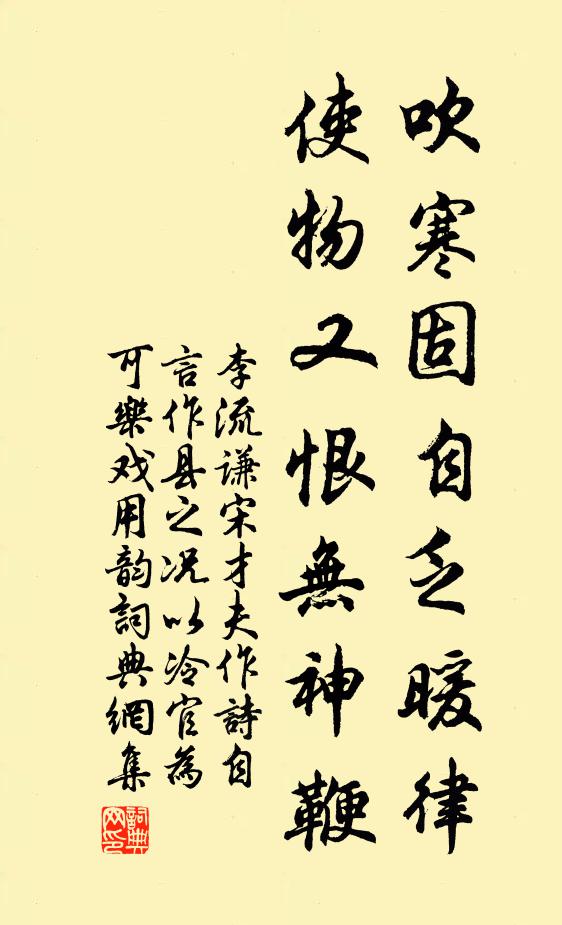 吹寒固自乏暖律
使物又恨無神鞭
李流谦宋才夫作詩自
言作县之况以冷官為
可樂戏用韵詞典網集
詞典网印